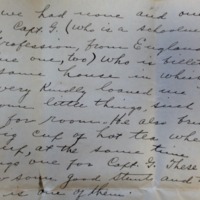 we had none and our
Capt. G. (who is a schoolmas
profession, from England
one, too) who is billet
same house in which
very kindly loaned me
little things, such
for room. He also bri
cup of hot tea whe
up, at the same time
one for Capt. G. These
some good sterts and
is one of them.